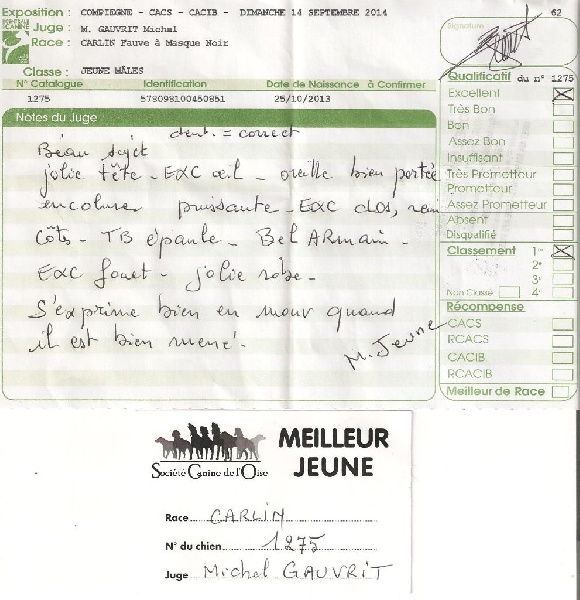 Exposition : COMPIEGNE - CACS - CACIB - DIMANCHE 14 SEPTEMBRE 2014
Juge : M. GAUVRIT Michel
Race : CARLIN Fauve à Masque Noir
Classe : JEUNE MÂLES
N° Catalogue Identification Date de Naissance à Confirmer
1275 578098100450851 25/10/2013
Notes du Juge
dent. = correct
Béau sujet
jolie tête - EXC œil - oreille bien portée
encolure puissante - EXC dos, rein
Côts - TB épaule - Bel ARmain -
EXC fouet - jolie robe -
S'exprime bien en mouv quand
il est bien mené.
M. Jeune
62
Signature
Qualificatif du n° 1275
Excellent
Très Bon
Bon
Assez Bon
Insuffisant
Très Prometteur
Prometteur
Assez Prometteur
Absent
Disqualifié
Classement 1er
2e
3e
Non Classé 4e
Récompense
CACS
RCACS
CACIB
RCACIB
Meilleur de Race
MEILLEUR
JEUNE
Société Canine de l'Oise
Race CARLIN
N° du chien 1275
Juge Michel GAUVRIT